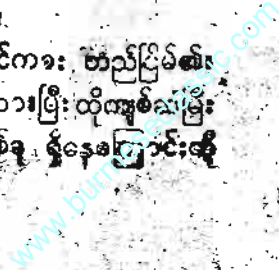 င်ကား တည်ငြိမ်၏။
ထားပြီး ထိုကျစ်လျစ်
စ်ခု ရှိနေကြောင်းကို
www.burmeseclassic.com